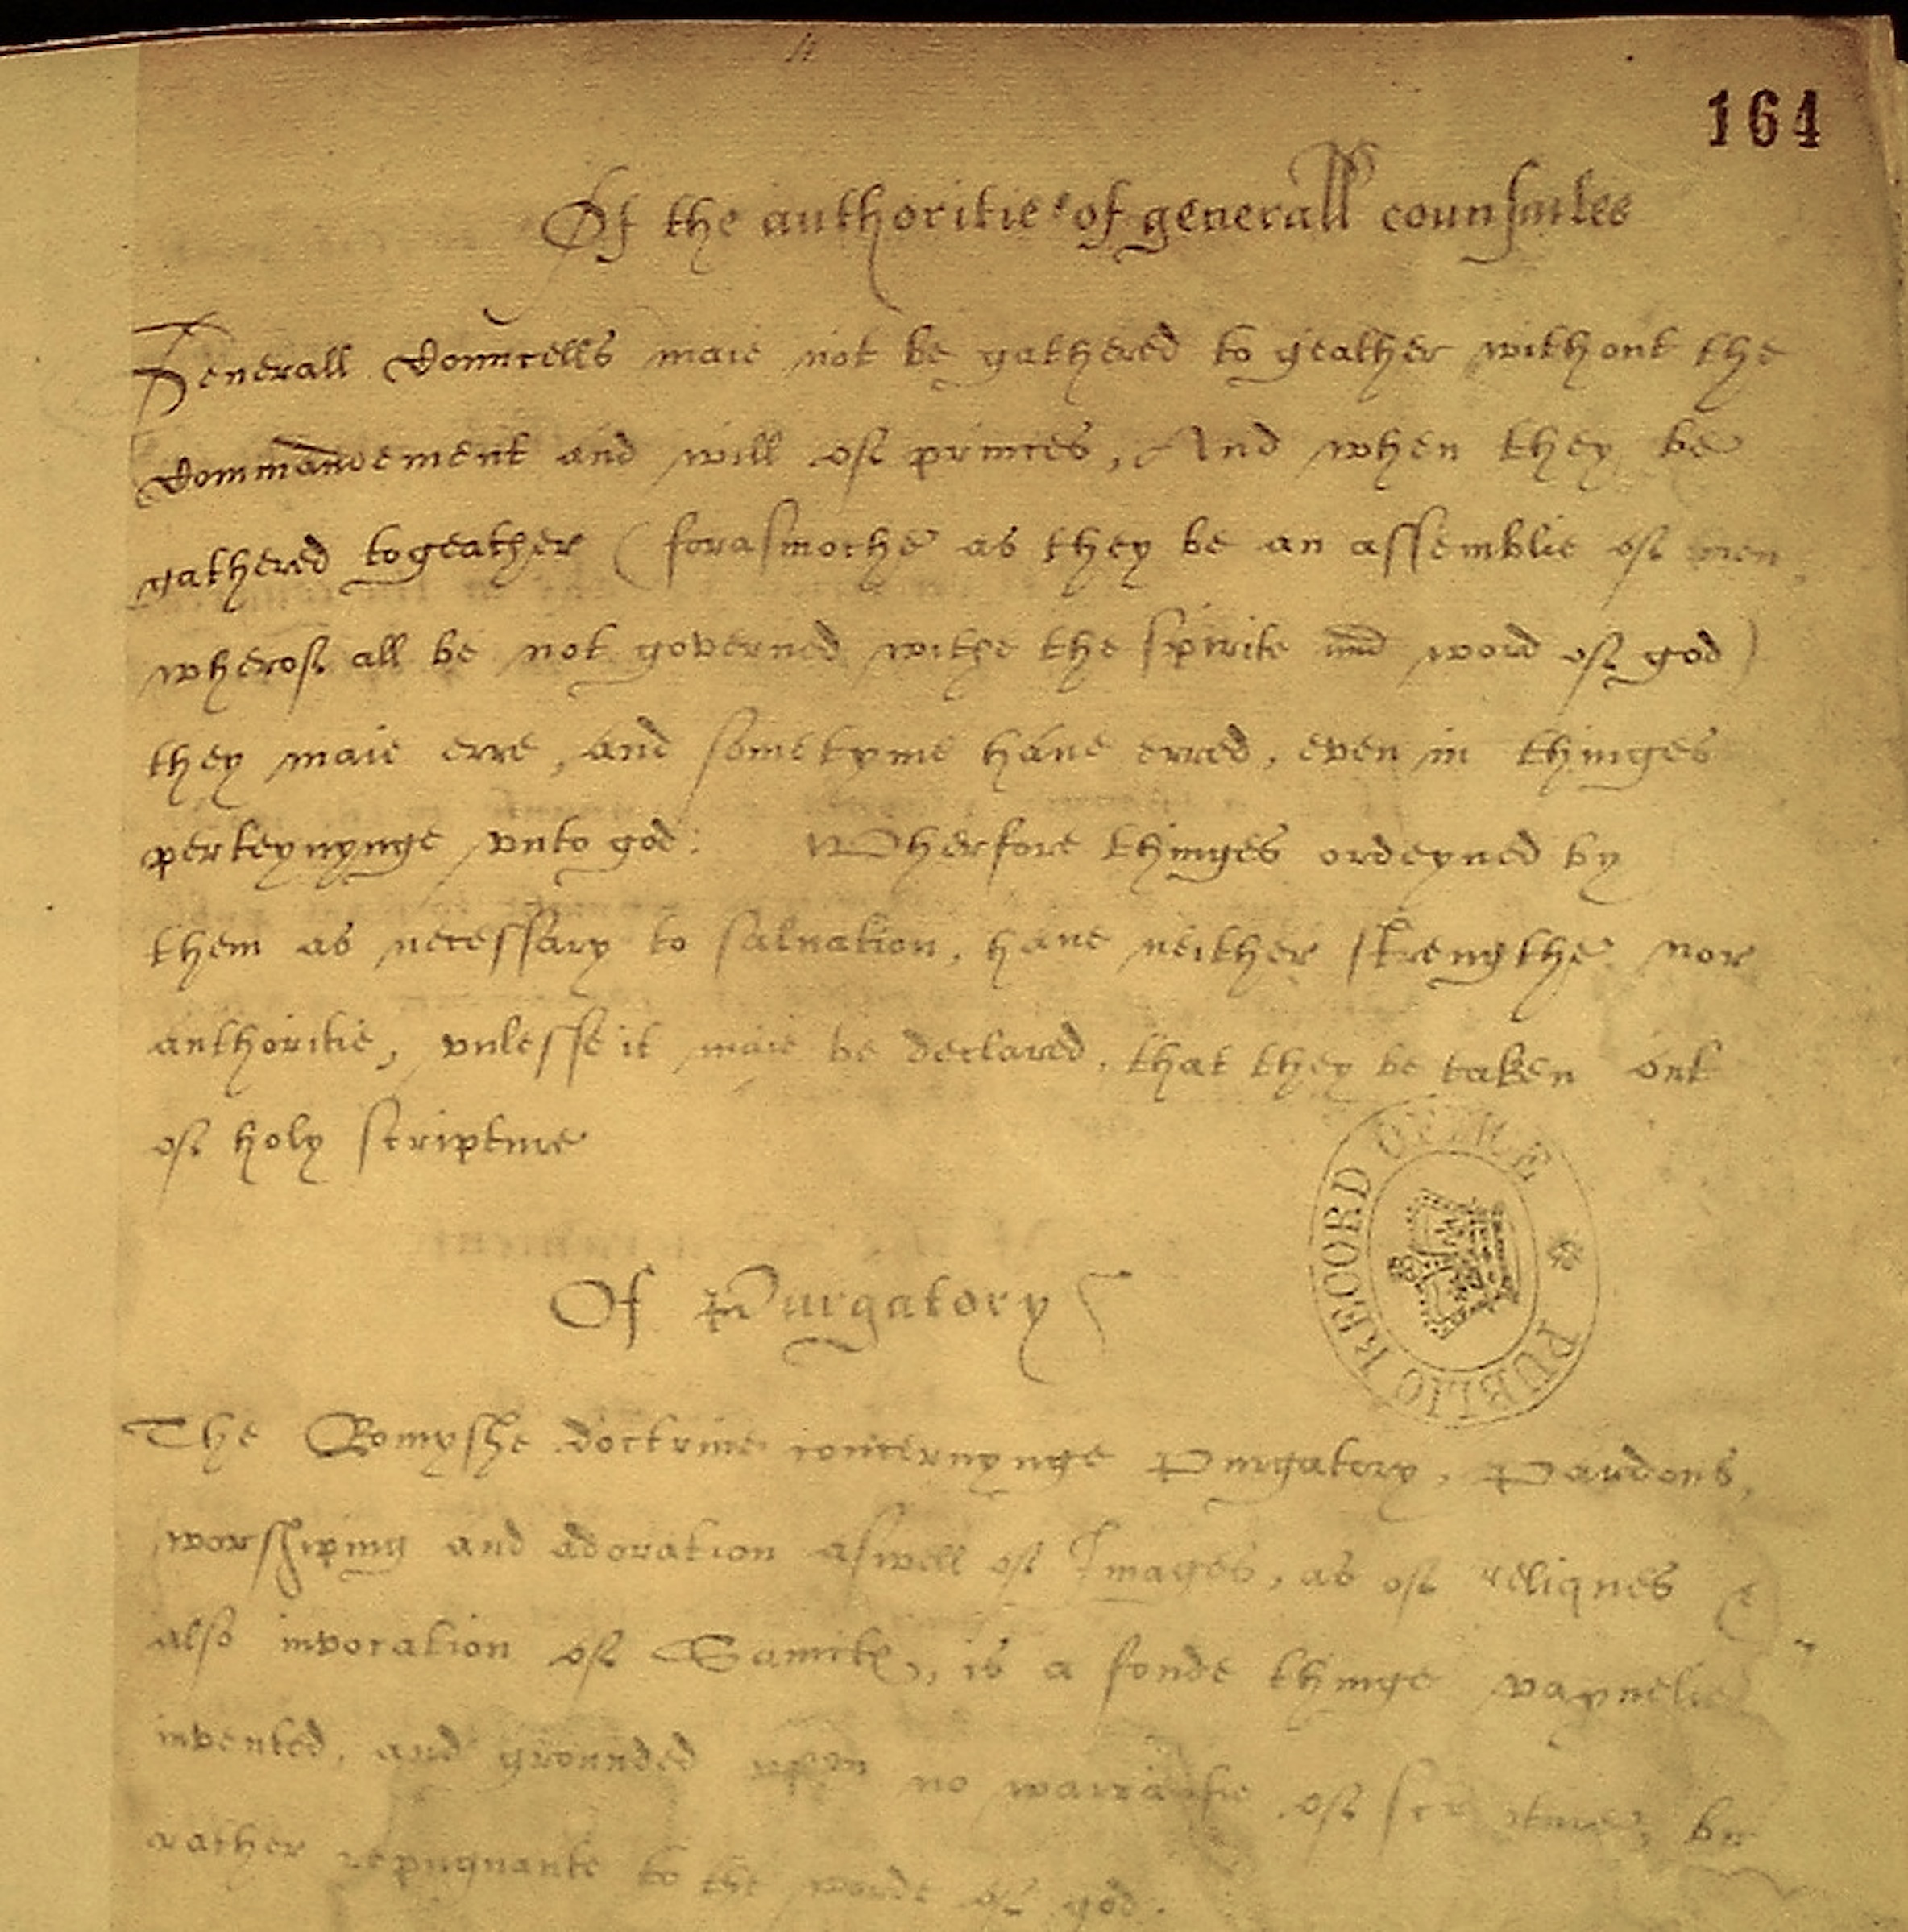 164
Of the authoritie of generall counsailes
Generall Councells maie not be gathered to geather without the
Commandement and will of princes, And when they be
gathered togeather (forasmoche as they be an assemblie of men
wherof all be not governed withe the spirite and word of god)
they maie erre, and sometyme haue erred, even in thinges
perteynynge vnto god: Wherfore thinges ordeyned by
them as necessary to saluation, haue neither strengthe nor
authoritie, vnlesse it maie be declared, that they be taken out
of holy scripture
Of Purgatory
PUBLIC RECORD OFFICE
The Romyshe doctrine concernynge Purgatory, Pardons,
worshiping and adoration aswell of Images, as of reliques
also invocation of Saincts, is a fonde thinge vaynelie
invented, and grounded upon no warrantie of scripture, but
rather repugnante to the worde of god.